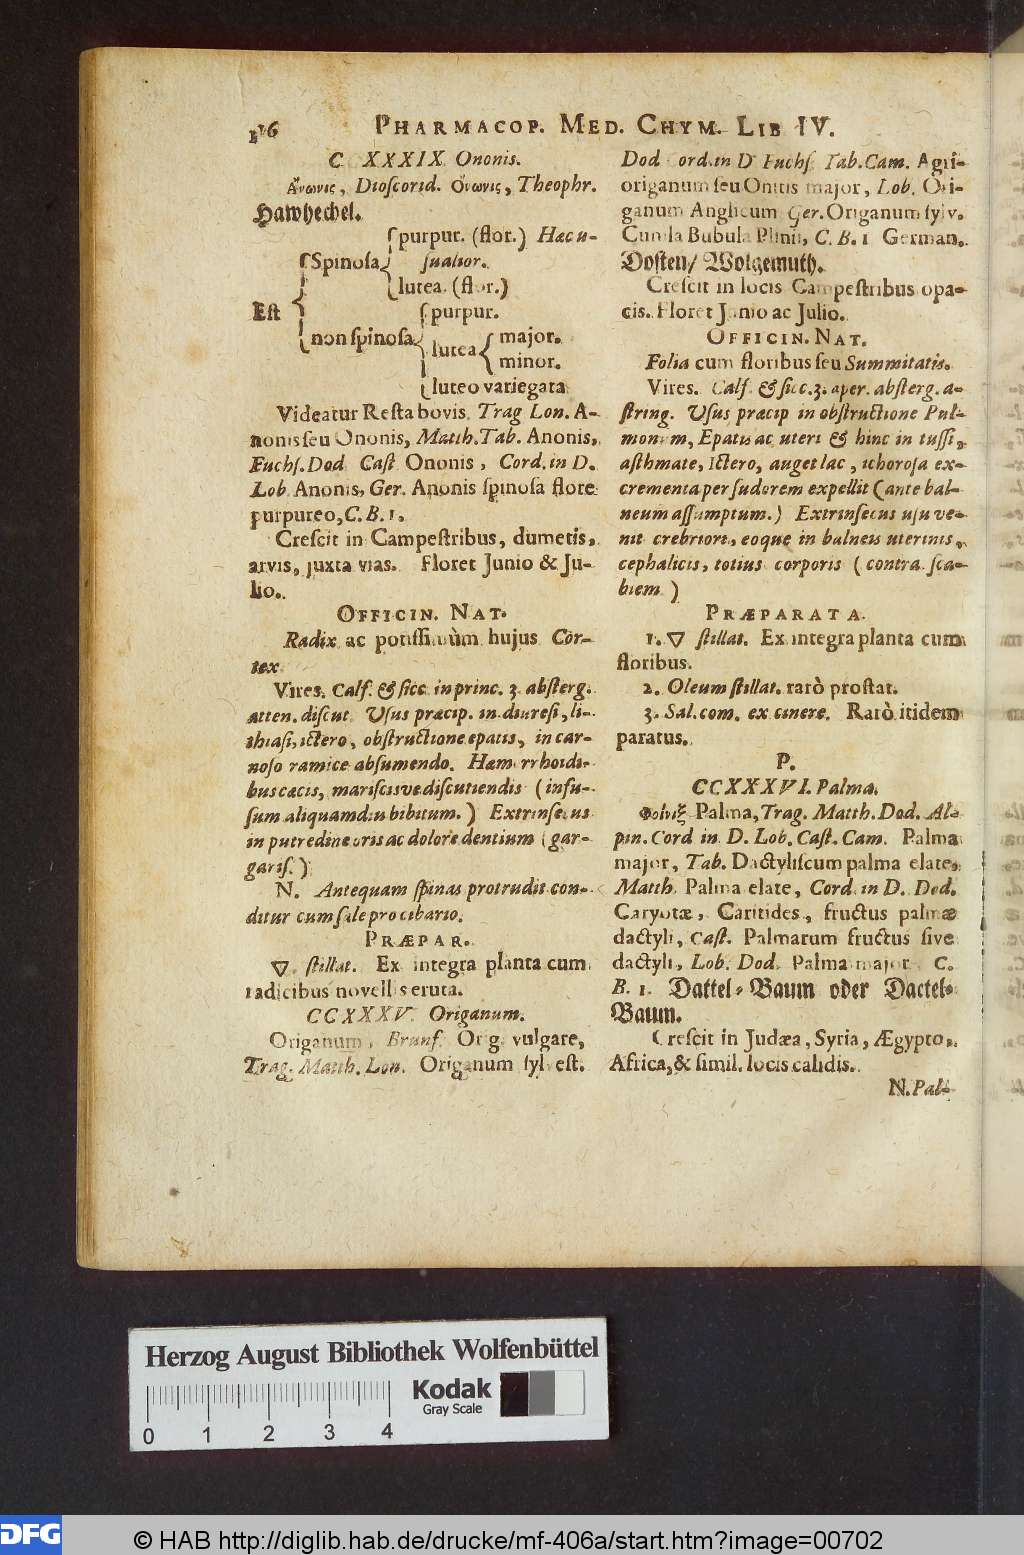 PHARMACOP. MED. CHYM. LIB IV.
C XXXIX Ononis.
Ἄνωνις, Dioſcorid. Ὀνωνις, Theophr.
Hawhechel.
Spinoſa
purpur. (flor.) Hæc u-
ſualior.
lutea. (flor.)
Eſt
non ſpinoſa
purpur.
lutea
major.
minor.
luteo variegata
Videatur Reſta bovis, Trag Lon. A-
nonis ſeu Ononis, Matth. Tab. Anonis,
Fuchſ. Dod Caſt Ononis, Cord. in D.
Lob. Anonis, Ger. Anonis ſpinoſa flore
purpureo, C. B. 1.
Creſcit in Campeſtribus, dumetis,
arvis, juxta vias. Floret Junio & Ju-
lio.
OFFICIN. NAT.
Radix ac potiſſimùm hujus Cor-
tex
Vires. Calf. & ſicc in princ. 3 abſterg.
atten. diſcut Uſus præcip. in diureſi, li-
thiaſi, ictero, obſtructione epatis, in car-
noſo ramice abſumendo. Hæmorrhoidi-
bus cæcis, mariſcisve diſcutiendis (infu-
ſum aliquamdiu bibitum.) Extrinſecus
in putredine oris ac dolore dentium (gar-
gariſ.)
N. Antequam ſpinas protrudit con-
ditur cum ſale pro cibario.
PRÆPAR.
🜄 ſtillat. Ex integra planta cum
radicibus novellis eruta.
CCXXXV. Origanum.
Origanum, Brunf. Orig. vulgare,
Trag. Matth. Lon. Origanum ſylveſt.
Dod Cord. in D Fuchſ Tab. Cam. Agri-
origanum ſeu Onitis major, Lob. Ori-
ganum Anglicum Ger. Origanum ſylv.
Cunila Bubula Plinii, C. B. 1 German.
Doſten/ Wolgemuth.
Creſcit in locis Campeſtribus opa-
cis. Floret Junio ac Julio.
OFFICIN. NAT.
Folia cum floribus ſeu Summitatis.
Vires. Calf. & ſicc. 3. aper. abſterg. a-
ſtring. Uſus præcip in obſtructione Pul-
monum, Epatis ac uteri & hinc in tuſſi,
aſthmate, ictero, auget lac, ichoroſa ex-
crementa per ſudorem expellit (ante bal-
neum aſſumptum.) Extrinſecus uſu ve-
nit crebriori, eoque in balneis uterinis,
cephalicis, totius corporis (contra ſca-
biem)
PRÆPARATA.
1. 🜄 ſtillat. Ex integra planta cum
floribus.
2. Oleum ſtillat. rarò proſtat.
3. Sal. com. ex cinere. Rarò itidem
paratus.
P.
CCXXXVI. Palma.
Φοίνιξ Palma, Trag. Matth. Dod. Al-
pin. Cord in D. Lob. Caſt. Cam. Palma
major, Tab. Dactyliſcum palma elate,
Matth. Palma elate, Cord. in D. Dod.
Caryotæ, Caritides, fructus palmæ
dactyli, Caſt. Palmarum fructus ſive
dactyli, Lob. Dod. Palma major C.
B. 1. Dattel-Baum oder Dactel-
Baum.
Creſcit in Judæa, Syria, Ægypto,
Africa, & ſimil. locis calidis.
N. Pal-
Herzog August Bibliothek Wolfenbüttel
Kodak
Gray Scale
0 1 2 3 4
DFG
© HAB http://diglib.hab.de/drucke/mf-406a/start.htm?image=00702